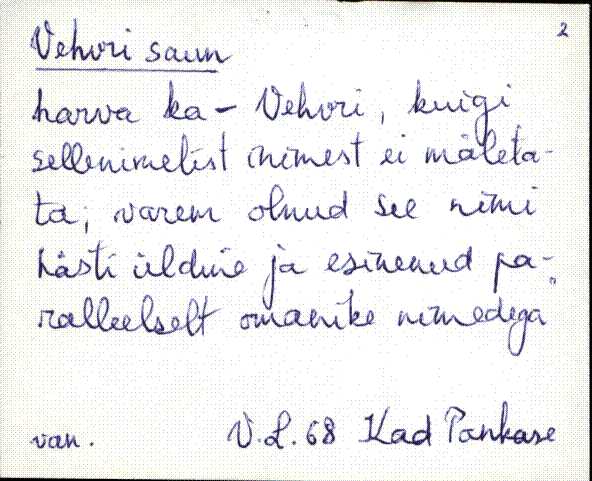 2
Vehvri saun
harva ka – Vehvri, kuigi
sellenimelist inimest ei mäleta-
ta; varem olnud see nimi
hästi üldine ja esinenud pa-
ralleelselt omanike nimedega
van. V.L. 68 Kad Pankase